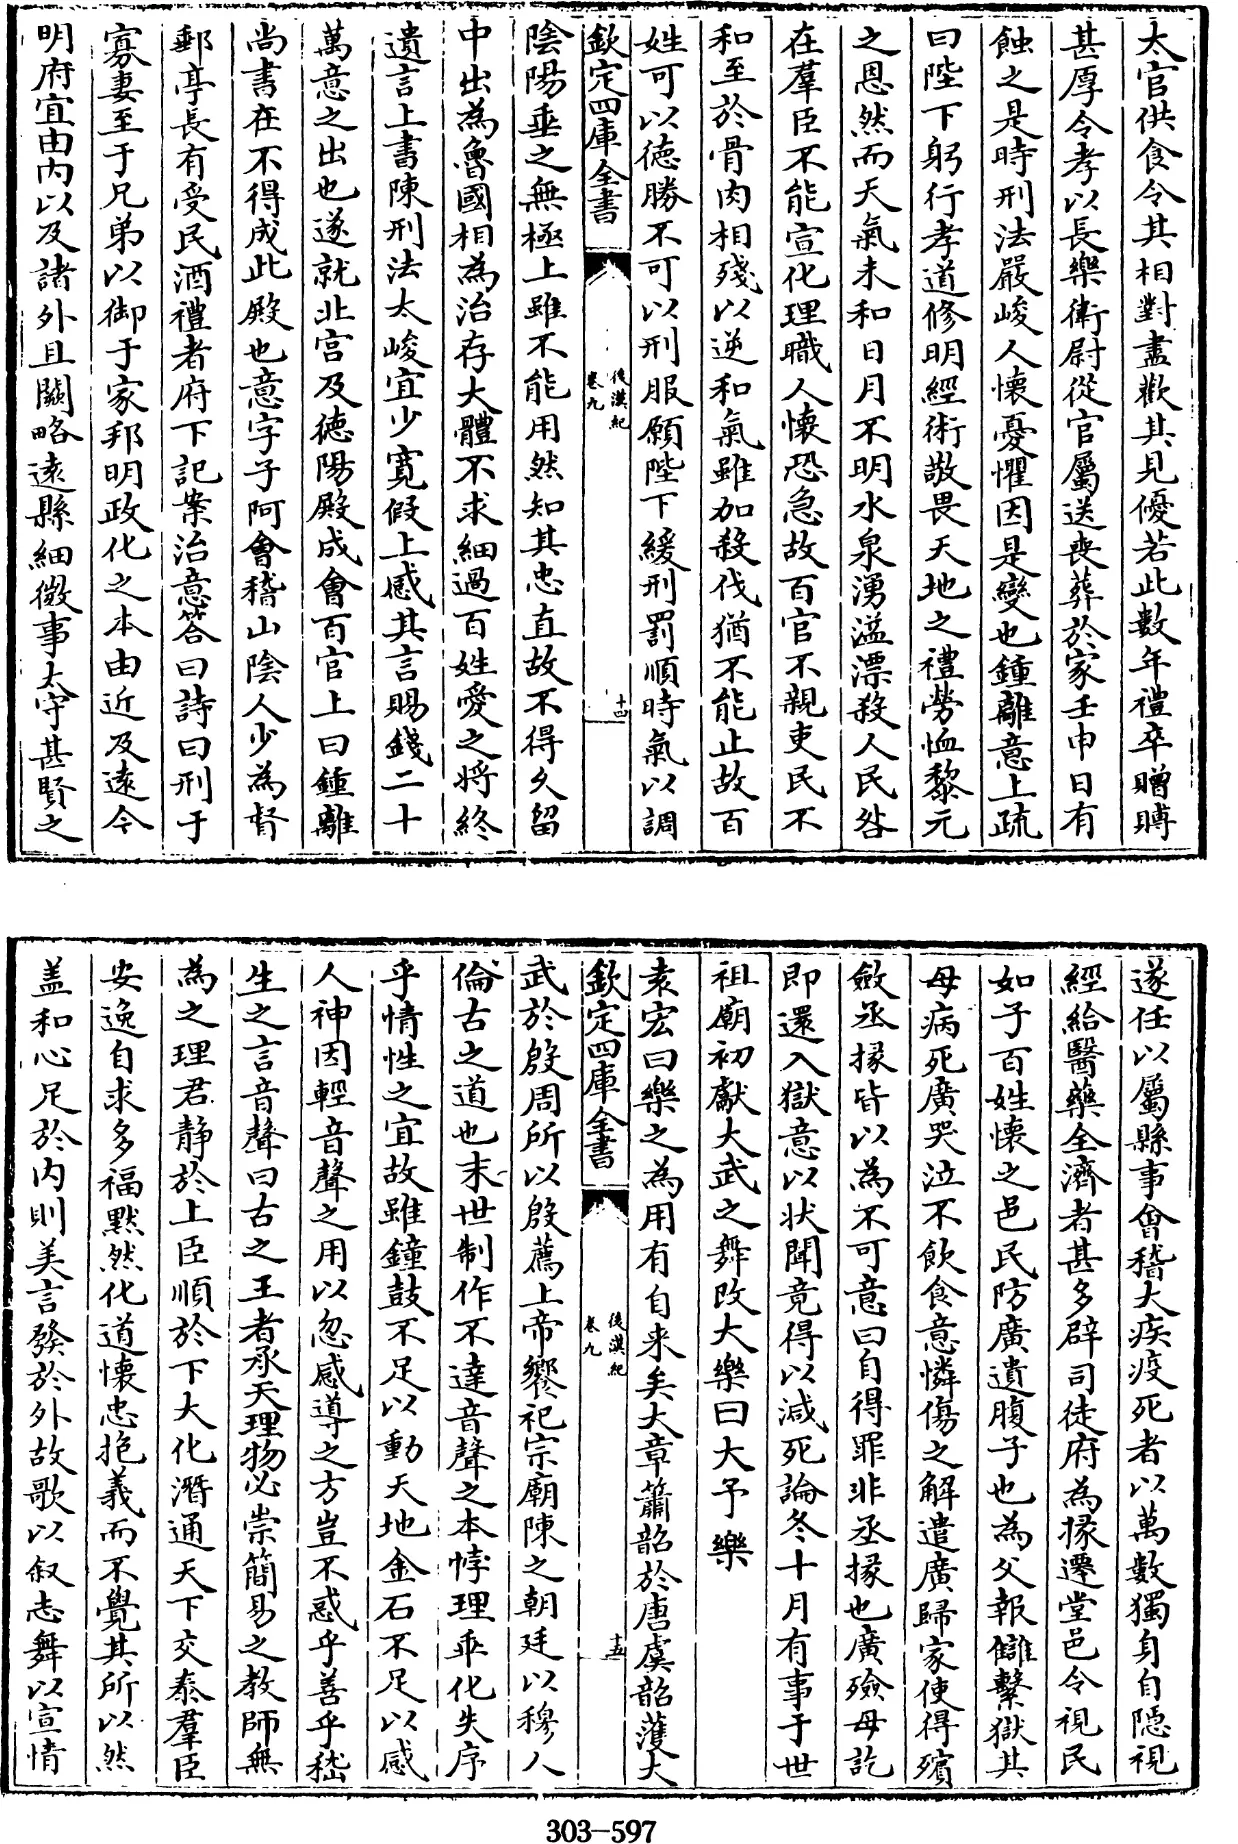 太官供食令其相對盡歡其見優若此數年禮卒贈賻
甚厚令孝以長樂衛尉從官屬送喪葬於家壬申日有
蝕之是時刑法嚴峻人懷憂懼因是變也鍾離意上疏
曰陛下躬行孝道修明經術敬畏天地之禮勞恤黎元
之恩然而天氣未和日月不明水泉湧溢漂殺人民咎
在羣臣不能宣化理職人懷恐急故百官不親吏民不
和至於骨肉相殘以逆和氣雖加殺伐猶不能止故百
姓可以德勝不可以刑服願陛下緩刑罰順時氣以調
欽定四庫全書
後漢紀
卷九
十四
陰陽垂之無極上雖不能用然知其忠直故不得久留
中出為魯國相為治存大體不求細過百姓愛之將終
遺言上書陳刑法太峻宜少寬假上感其言賜錢二十
萬意之出也遂就北宮及德陽殿成會百官上曰鍾離
尚書在不得成此殿也意字子阿會稽山陰人少為督
郵亭長有受民酒禮者府下記案治意答曰詩曰刑于
寡妻至于兄弟以御于家邦明政化之本由近及遠今
明府宜由內以及諸外且闊略遠縣細微事太守甚賢之
遂任以屬縣事會稽大疾疫死者以萬數獨身自隱視
經給醫藥全濟者甚多辟司徒府為掾遷堂邑令視民
如子百姓懷之邑民防廣遺腹子也為父報讎繫獄其
母病死廣哭泣不飲食意憐傷之解遣廣歸家使得殯
斂丞掾皆以為不可意曰自得罪非丞掾也廣殮母訖
即還入獄意以狀聞竟得以減死論冬十月有事于世
祖廟初獻大武之舞改大樂曰大予樂
袁宏曰樂之為用有自来矣大章簫韶於唐虞韶濩大
欽定四庫全書
後漢紀
卷九
十五
武於殷周所以殷薦上帝饗祀宗廟陳之朝廷以穆人
倫古之道也末世制作不達音聲之本悖理乖化失序
乎情性之宜故雖鐘鼓不足以動天地金石不足以感
人神因輕音聲之用以忽感導之方豈不惑乎善乎嵇
生之言音聲曰古之王者承天理物必崇簡易之教師無
為之理君静於上臣順於下大化潛通天下交泰羣臣
安逸自求多福默然化道懷忠抱義而不覺其所以然
盖和心足於内則美言發於外故歌以叙志舞以宣情
303-597